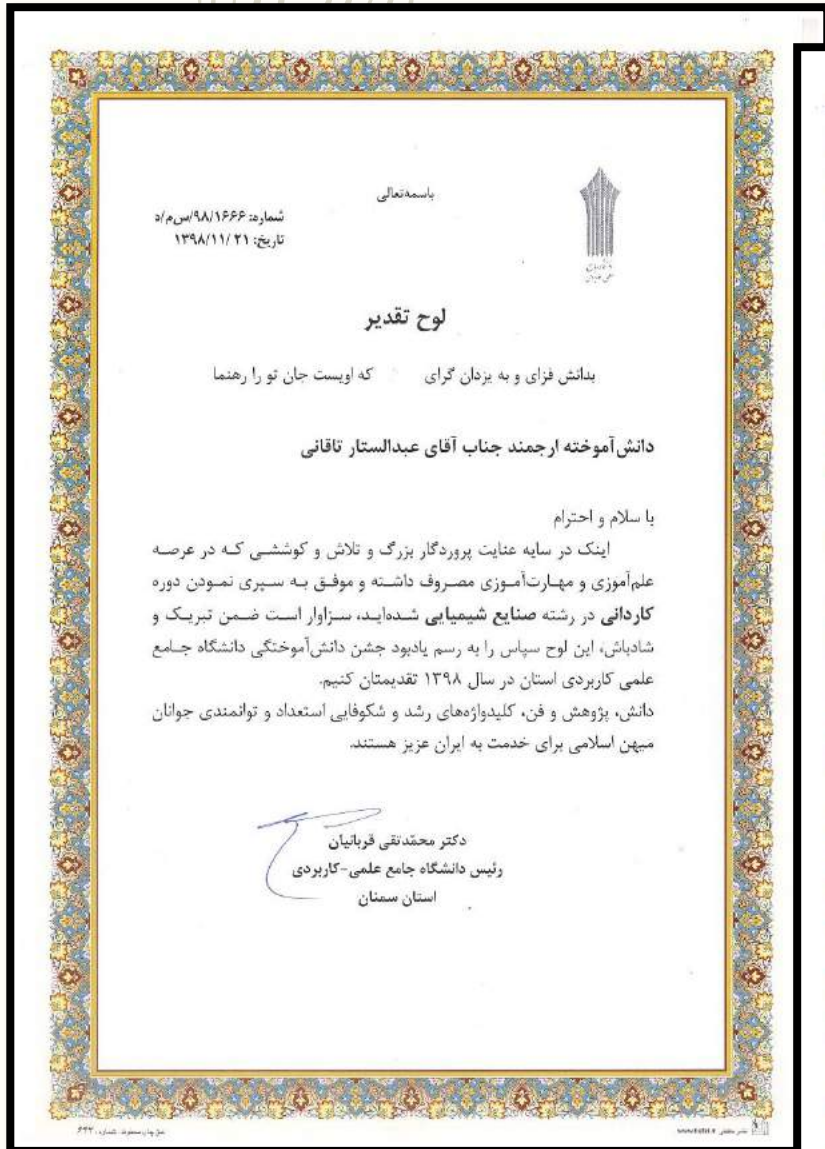 باسمه‌تعالی
شماره: ۹۸/۱۶۶۶/س‌م/ه
تاریخ: ۱۳۹۸/۱۱/۲۱
لوح تقدیر
بدانش فزای و به یزدان گرای که اویست جان تو را رهنما
دانش‌آموخته ارجمند جناب آقای عبدالستار تاقانی
با سلام و احترام
اینک در سایه عنایت پروردگار بزرگ و تلاش و کوششی که در عرصه
علم‌آموزی و مهارت‌آموزی مصروف داشته و موفق به سپری نمودن دوره
کاردانی در رشته صنایع شیمیایی شده‌اید، سزاوار است ضمن تبریک و
شادباش، این لوح سپاس را به رسم یادبود جشن دانش‌آموختگی دانشگاه جامع
علمی کاربردی استان در سال ۱۳۹۸ تقدیمتان کنیم.
دانش، پژوهش و فن، کلیدواژه‌های رشد و شکوفایی استعداد و توانمندی جوانان
میهن اسلامی برای خدمت به ایران عزیز هستند.
دکتر محمّدتقی قربانیان
رئیس دانشگاه جامع علمی-کاربردی
استان سمنان